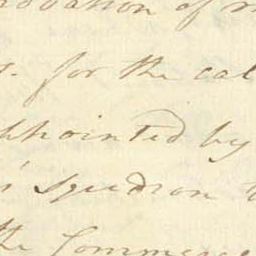 of
. for the cal
ppointed by
squadron
the Commerce